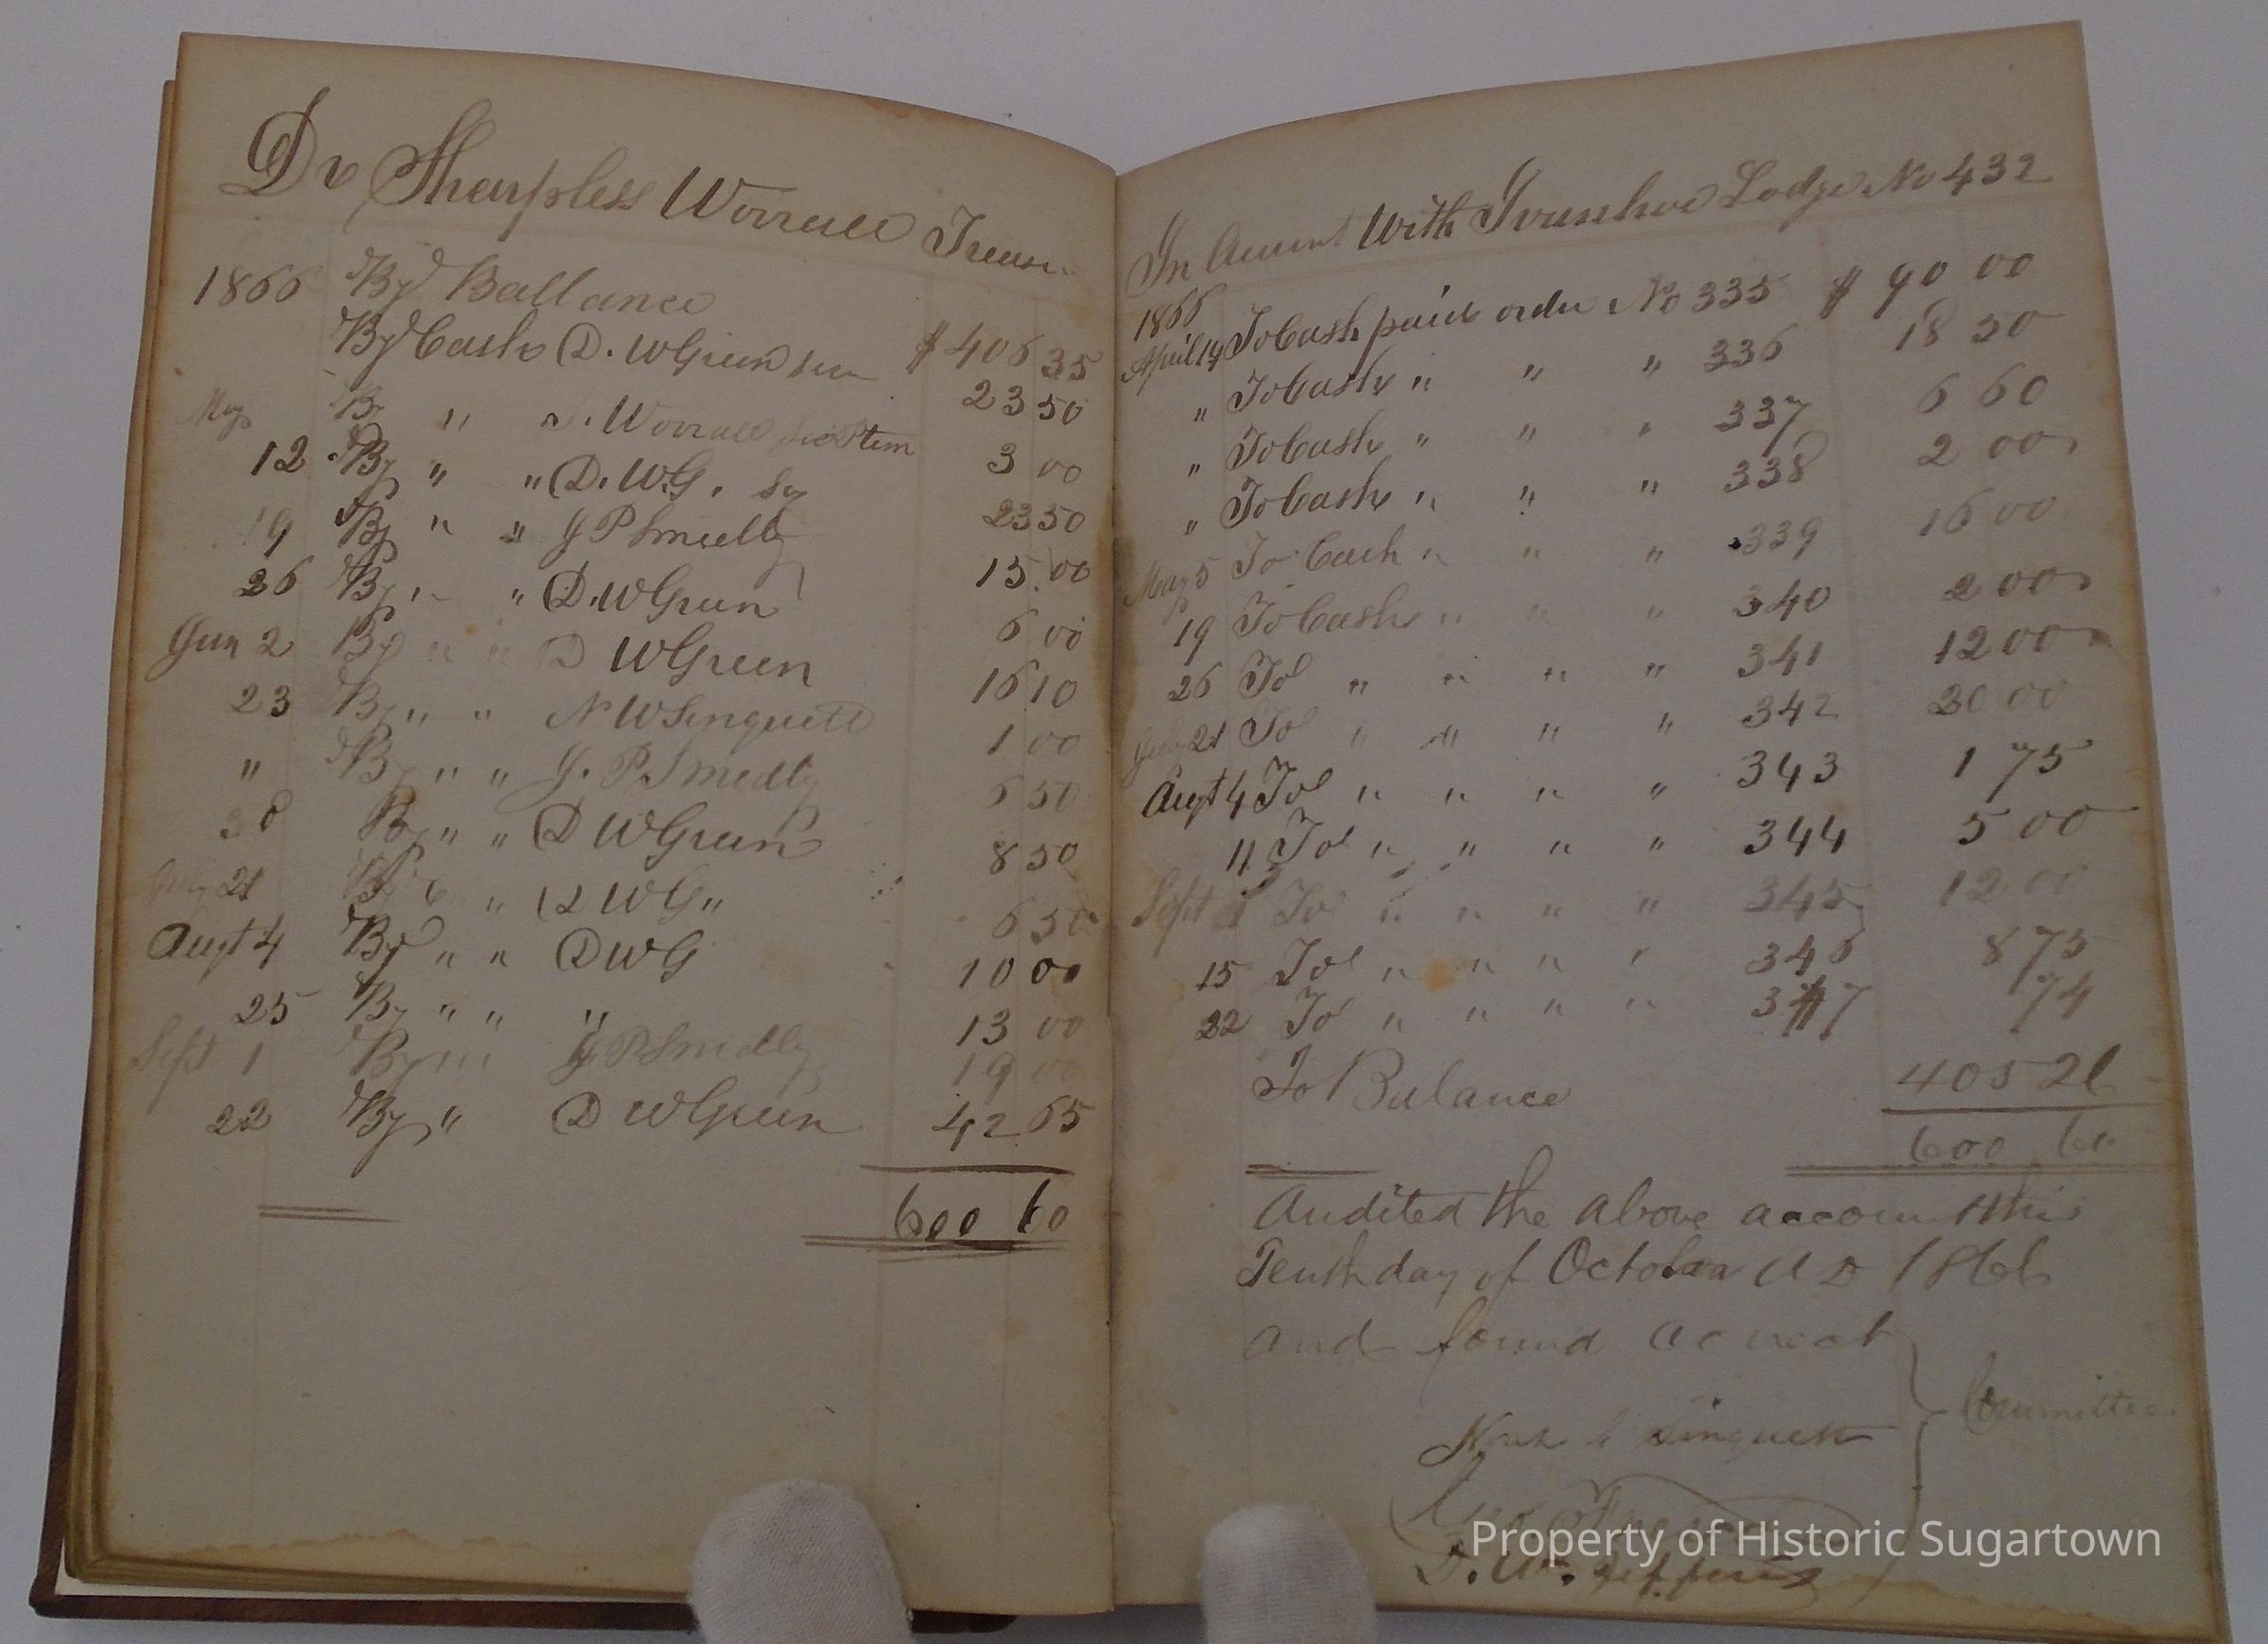 Dr Sharpless Worrall Treasr
1866 By Ballance $ 406 35
By Cash D. W Green sec 23 50
May By " " S. Worrall sec P tem 3 00
12 By " " D. W. G. Sy 23 50
19 By " " J P Smedly 15 00
26 By " " D. W Green 6 00
Jun 2 By " " D W Green 16 10
23 By " " N W Sinquett 1 00
" By " " J. P. Smedly 6 50
30 By " " D W Green 8 50
July 21 By " " D W G " 6 50
Augt 4 By " " D W G 10 00
25 By " " " 13 00
Sept 1 By " " J P Smedly 19 00
22 By " D W Green 42 65
600 60
In Account With Ivanhoe Lodge No 432
1866
April 14 To Cash paid order No 335 $ 90 00
" To Cash " " " 336 18 50
" To Cash " " " 337 6 60
" To Cash " " " 338 2 00
May 5 To Cash " " " 339 16 00
19 To Cash " " " 340 2 00
26 To " " " " 341 12 00
July 21 To " " " " 342 20 00
Augt 4 To " " " " 343 1 75
11 To " " " " 344 5 00
Sept 1 To " " " " 345 12 00
15 To " " " " 346 8 75
22 To " " " " 347 74
To Balance 405 26
600 60
Audited the above account this
Tenth day of October A D 1866
and found correct
Sinquett
Committee
D. W. Jefferis
Property of Historic Sugartown